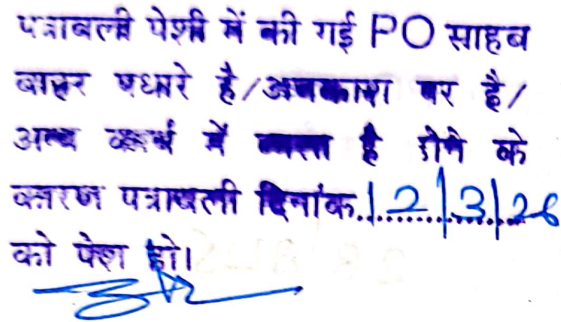 पत्रावली पेशी में की गई PO साहब
बाहर पधारे है/अवकाश पर है/
अन्य कार्य में व्यस्त है होने के
कारण पत्रावली दिनांक.12/3/26
को पेश हो।